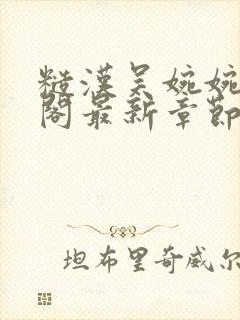 糙漢吴婉婉
閣最新章節
坦布里奇威尔